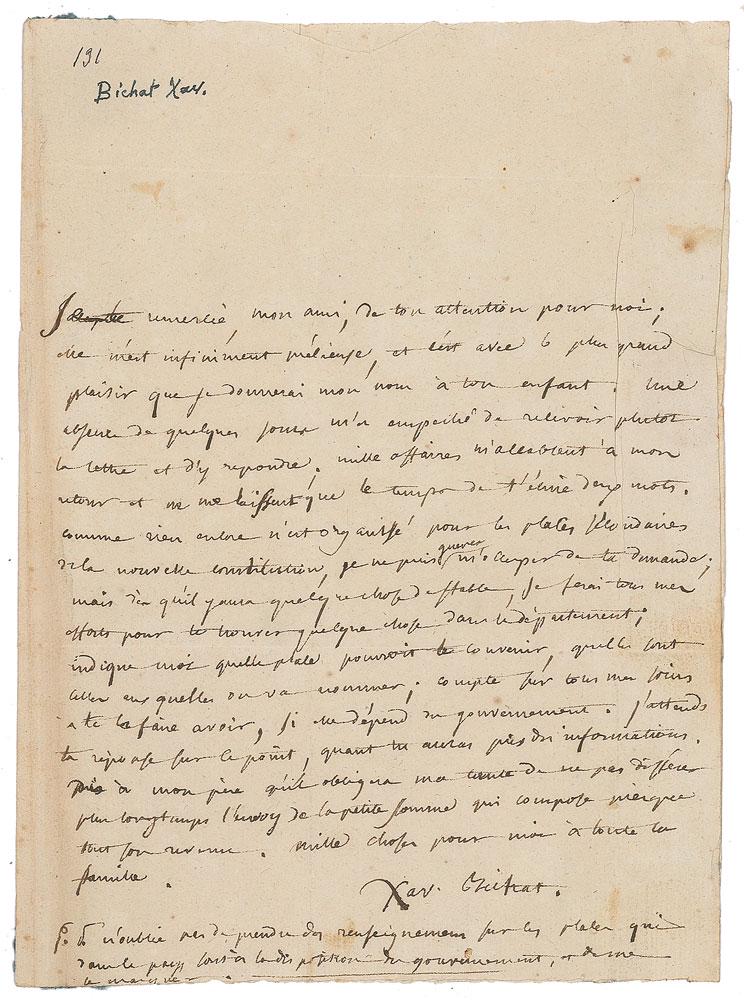 191
Bichat Xav.
Je te remercie, mon ami, de ton attention pour moi;
elle m'est infiniment prétieuse, et c'est avec le plus grand
plaisir que je donnerai mon nom à ton enfant. Une
absence de quelques jours m'a empeché de recevoir plutot
ta lettre et d'y repondre. mille affaires m'accablent à mon
retour et ne me laissent que le temps de t'écrire deux mots.
comme rien encore n'est organissé pour les places secondaires
de la nouvelle constitution, je ne puis guerer m'occuper de ta demande;
mais dès qu'il y aura quelque chose de stable, je ferai tous mes
efforts pour te trouver quelque chose dans le département;
indique moi quelle place pourroit te convenir, quelles sont
celles auxquelles on va nommer; compte sur tous mes soins
à te la faire avoir, si elle dépend du gouvernement. j'attends
ta réponse sur ce point, quant tu auras pris des informations.
Dis à mon père qu'il obligera ma tante de ne pas différer
plus longtemps l'envoy de la petite somme qui compose presque
tout son revenu. mille choses pour moi à toute la
famille.
Xav. Bichat.
p. s. n'oublie pas de prendre des renseignemens sur les places qui
dans le pays sont à la disposition du gouvernement, et de me
le marquer.